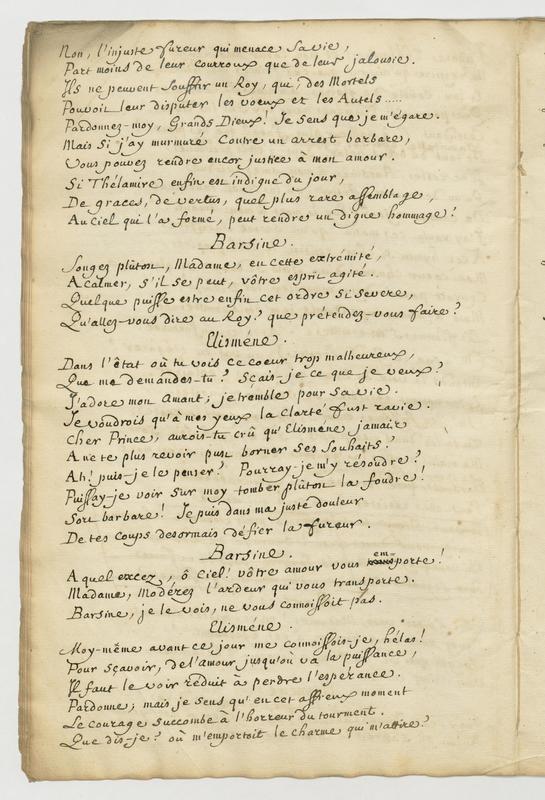 Non, l'injuste fureur qui menace sa vie,
Part moins de leur courroux que de leur jalousie.
Ils ne peuvent souffrir un Roy, qui, des Mortels
Pouvoit leur disputer les voeux et les Autels.....
Pardonnez-moy, Grands Dieux! Je sens que je m'égare.
Mais si j'ay murmuré contre un arrest barbare,
Vous pouvez rendre encor justice à mon amour.
Si Thélamire enfin est indigne du jour,
De graces, de vertus, quel plus rare assemblage,
Au Ciel qui l'a formé, peut rendre un digne hommage?
Barsine.
Songez plûtost, Madame, en cette extrémité,
A calmer, s'il se peut, vôtre esprit agité.
Quelque puisse estre enfin cet ordre si severe,
Qu'allez-vous dire au Roy? que prétendez-vous faire?
Elisméne.
Dans l'êtat où tu vois ce coeur trop malheureux,
Que me demandes-tu? Sçais-je ce que je veux?
J'adore mon Amant; je tremble pour sa vie.
Je voudrois qu'à mes yeux la clarté fust ravie.
Cher Prince, aurois-tu crû qu'Elisméne jamais
A ne te plus revoir pust borner ses souhaits?
Ah! puis-je le penser? Pourray-je m'y résoudre?
Puissay-je voir sur moy tomber plûtost la foudre!
Sort barbare! Je puis dans ma juste douleur
De tes coups desormais défier la fureur.
Barsine.
A quel excez, ô Ciel! vôtre amour vous emporte!
Madame, Modérez l'ardeur qui vous transporte.
Barsine, je le vois, ne vous connoissoit pas.
Elisméne.
Moy-même avant ce jour me connoissois-je, hélas!
Pour sçavoir, de l'amour jusqu'où va la puissance,
Il faut le voir réduit à perdre l'espérance.
Pardonne; mais je sens qu'en cet affreux moment
Le courage succombe à l'horreur du tourment.
Que dis-je? où m'emportoit le charme qui m'attire?